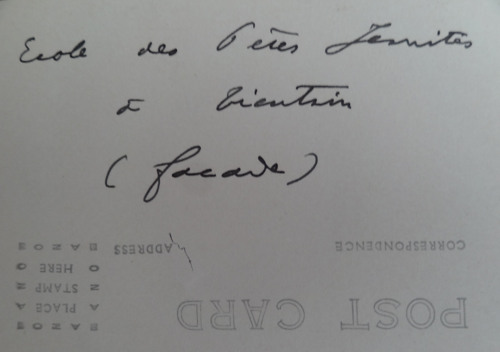 Ecole des Pères Jesuites
à Tientsin
(facade)
POST CARD
CORRESPONDENCE
ADDRESS
AZO
A PLACE A
Z STAMP Z
O HERE O
AZO